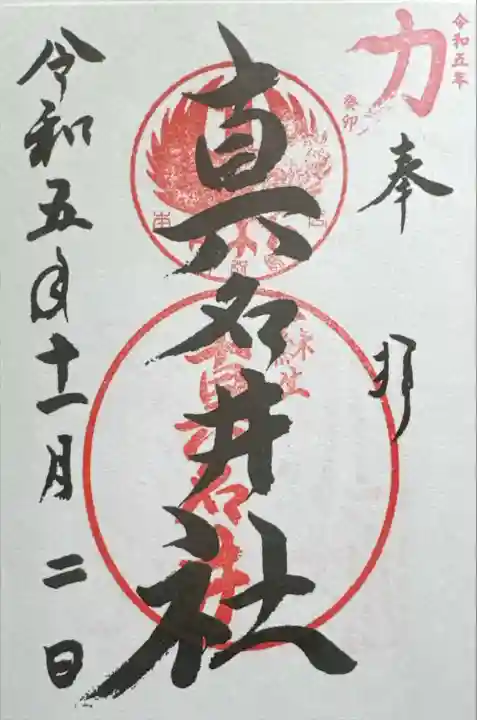 令和五年
癸卯
力
奉拝
真名井社
令和五年十一月二日